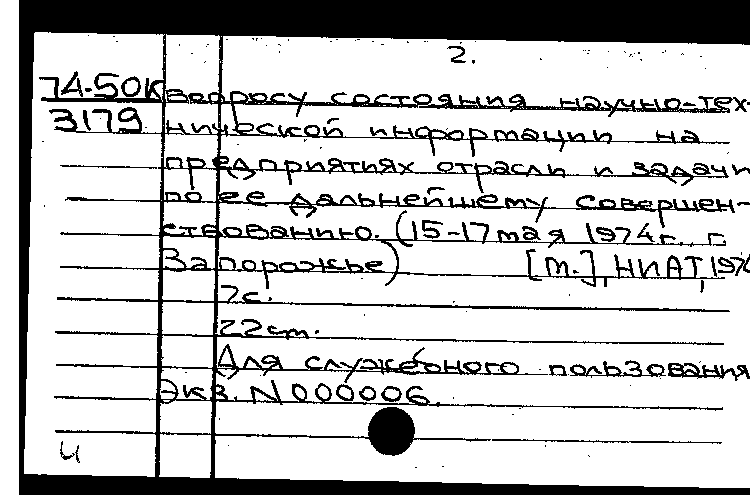 2.
74-50К вопросу состояния научно-тех-
3179 нической информации на
предприятиях отрасли и задачи
по ее дальнейшему совершен-
ствованию. (15-17 мая 1974г., г.
Запорожье) [М.], НИАТ, 197
7с.
22см.
Для служебного пользования
Экз. N 000006.
4